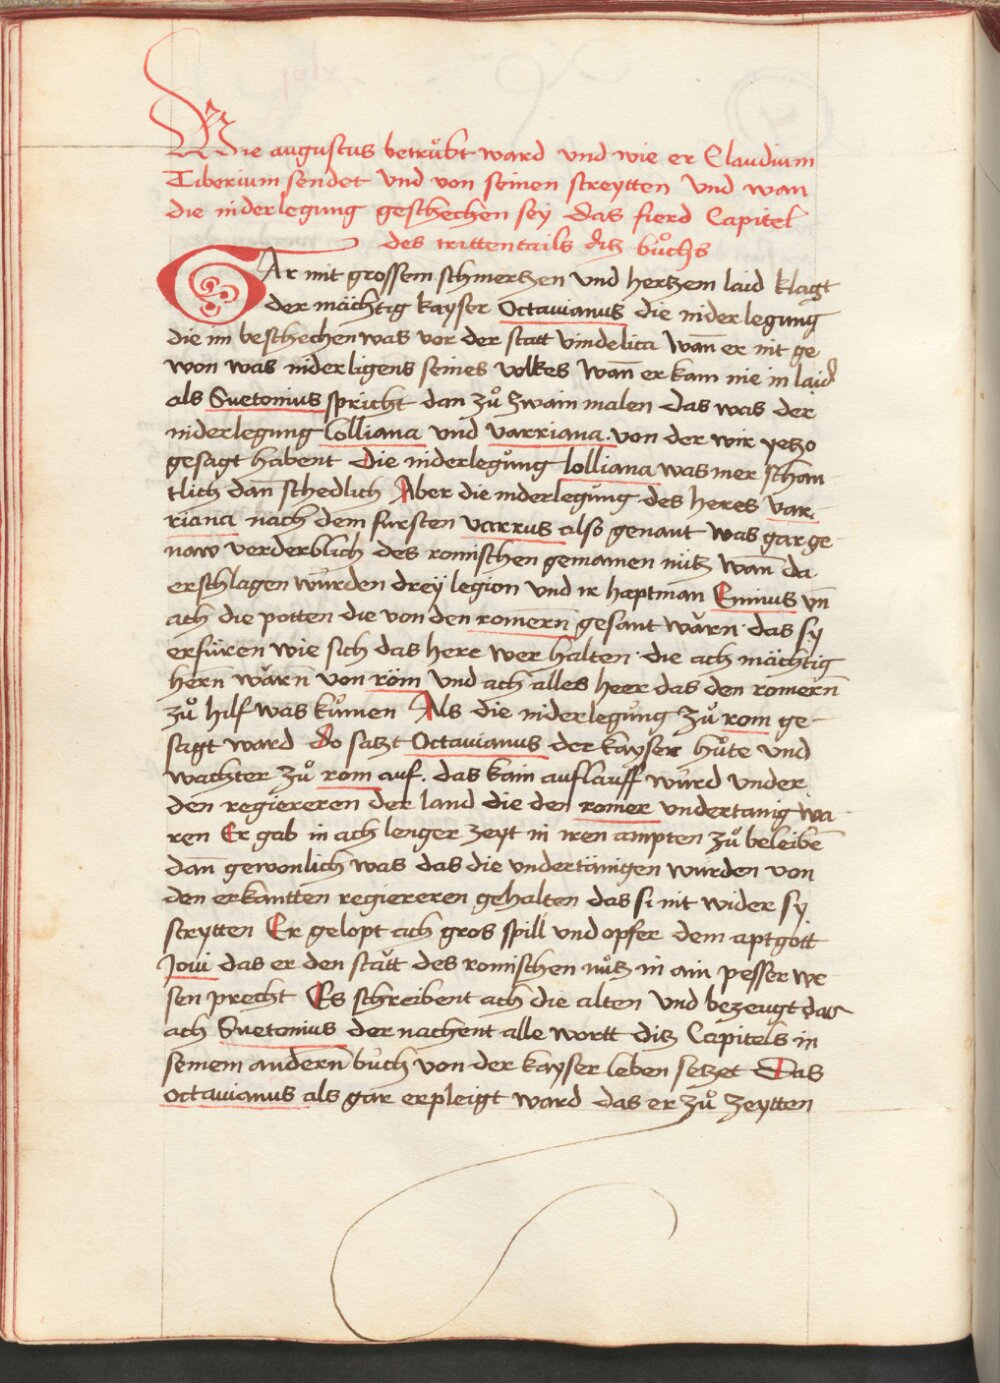 Wie augustus betrůbt ward und wie er Claudium
Tiberium sendet und von seinen streytten und wan
die niderlegung geschechen sey das fierd Capitel
des trittentails diz bůchs
GAr mit grossem schmertzen und hertzem laid klagt
der mächtig kayser Octavianus die niderlegung
die im beschechen was vor der statt vindelica wañ er nit ge
won was niderligens seines volkes wañ er kam nie in laid
als Suetonius spricht dan zů zwain malen das was der
niderlegung lolliana und varriana. von der wir yetzo
gesagt habent Die niderlegůng lolliana was mer schan
tlich dañ schedlich Aber die niderlegůng des heres var-
riana nach dem fursten varrus also genant was gar ge-
naw verderblich des romischen gemainen nütz wañ da
erschlagen wůrden dreÿ legion und ir haptman Ennius vñ
ach die potten die von den romern̄ gesant wǎrn das sy
erfüren wie sich das here wer halten die ach mächtig
hern̄ wǎrn̄ von röm und ach alles heer das den romern̄
zů hilf was kůmen Als die niderlegůng zů rom ge-
sagt ward Do satzt Octavianus der kayser hůte und
wachter zů rom auf. das kain auflauff wůrd under
den regiereren der land die den romer undertanig wa
ren Er gab in ach lenger zeyt in iren ampten zů beleibē
dañ gewonlich was das die undertänigen wůrden von
den erkantten regiereren gehalten das si nit wider sy
streytten Er gelopt ach gros spill und opfer dem aptgött
Joui das er den stǎtt des romischen nůtz in ain pesser we
sen precht Es schreibent ach die alten und bezeugt das
ach Suetonius der nachent alle wortt ditz Capitels in
seinem andern̄ bůch von der kayser leben setzet Das
octavianus als gar erpleigt ward das er zů zeytten